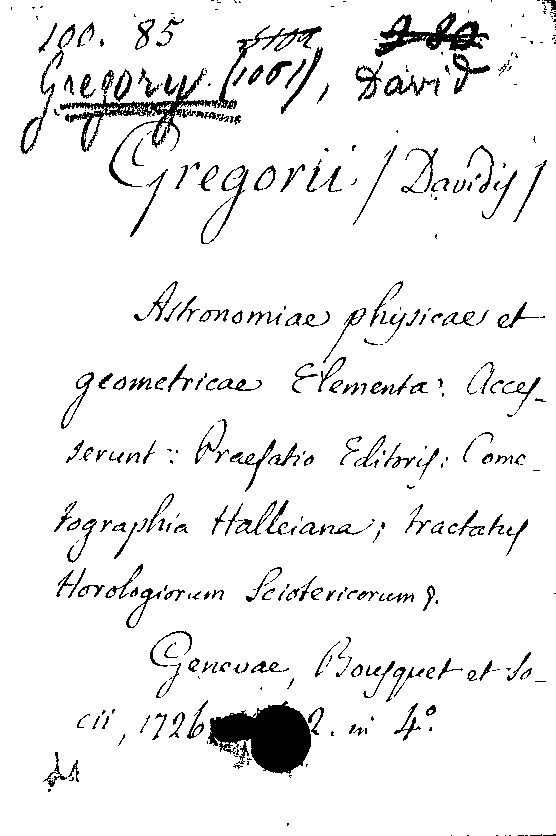 100. 85
Gregory (1661), David
Gregorii / Davidis /
Astronomiae physicae et
geometricae Elementa. Acces-
serunt: Praefatio Editoris: Come-
tographia Halleiana; tractatus
Horologiorum Sciotericorum.
Genevae, Bousquet et So-
cii, 1726 2. in 4°.